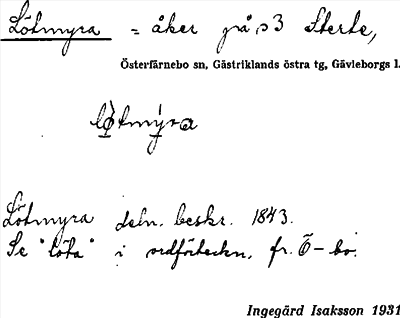 Lötmyra = åker på s3 Sterte,
Österfärnebo sn, Gästriklands östra tg, Gävleborgs l.
lötmyra
Lötmyra deln. beskr. 1843.
Se "löta" i ordförteckn. fr. Ö-bo.
Ingegärd Isaksson 1931